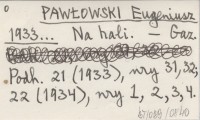 PAWŁOWSKI Eugeniusz
1933... Na hali. — Gaz.
Podh. 21 (1933), nry 31, 32;
22 (1934), nry 1, 2, 3, 4.